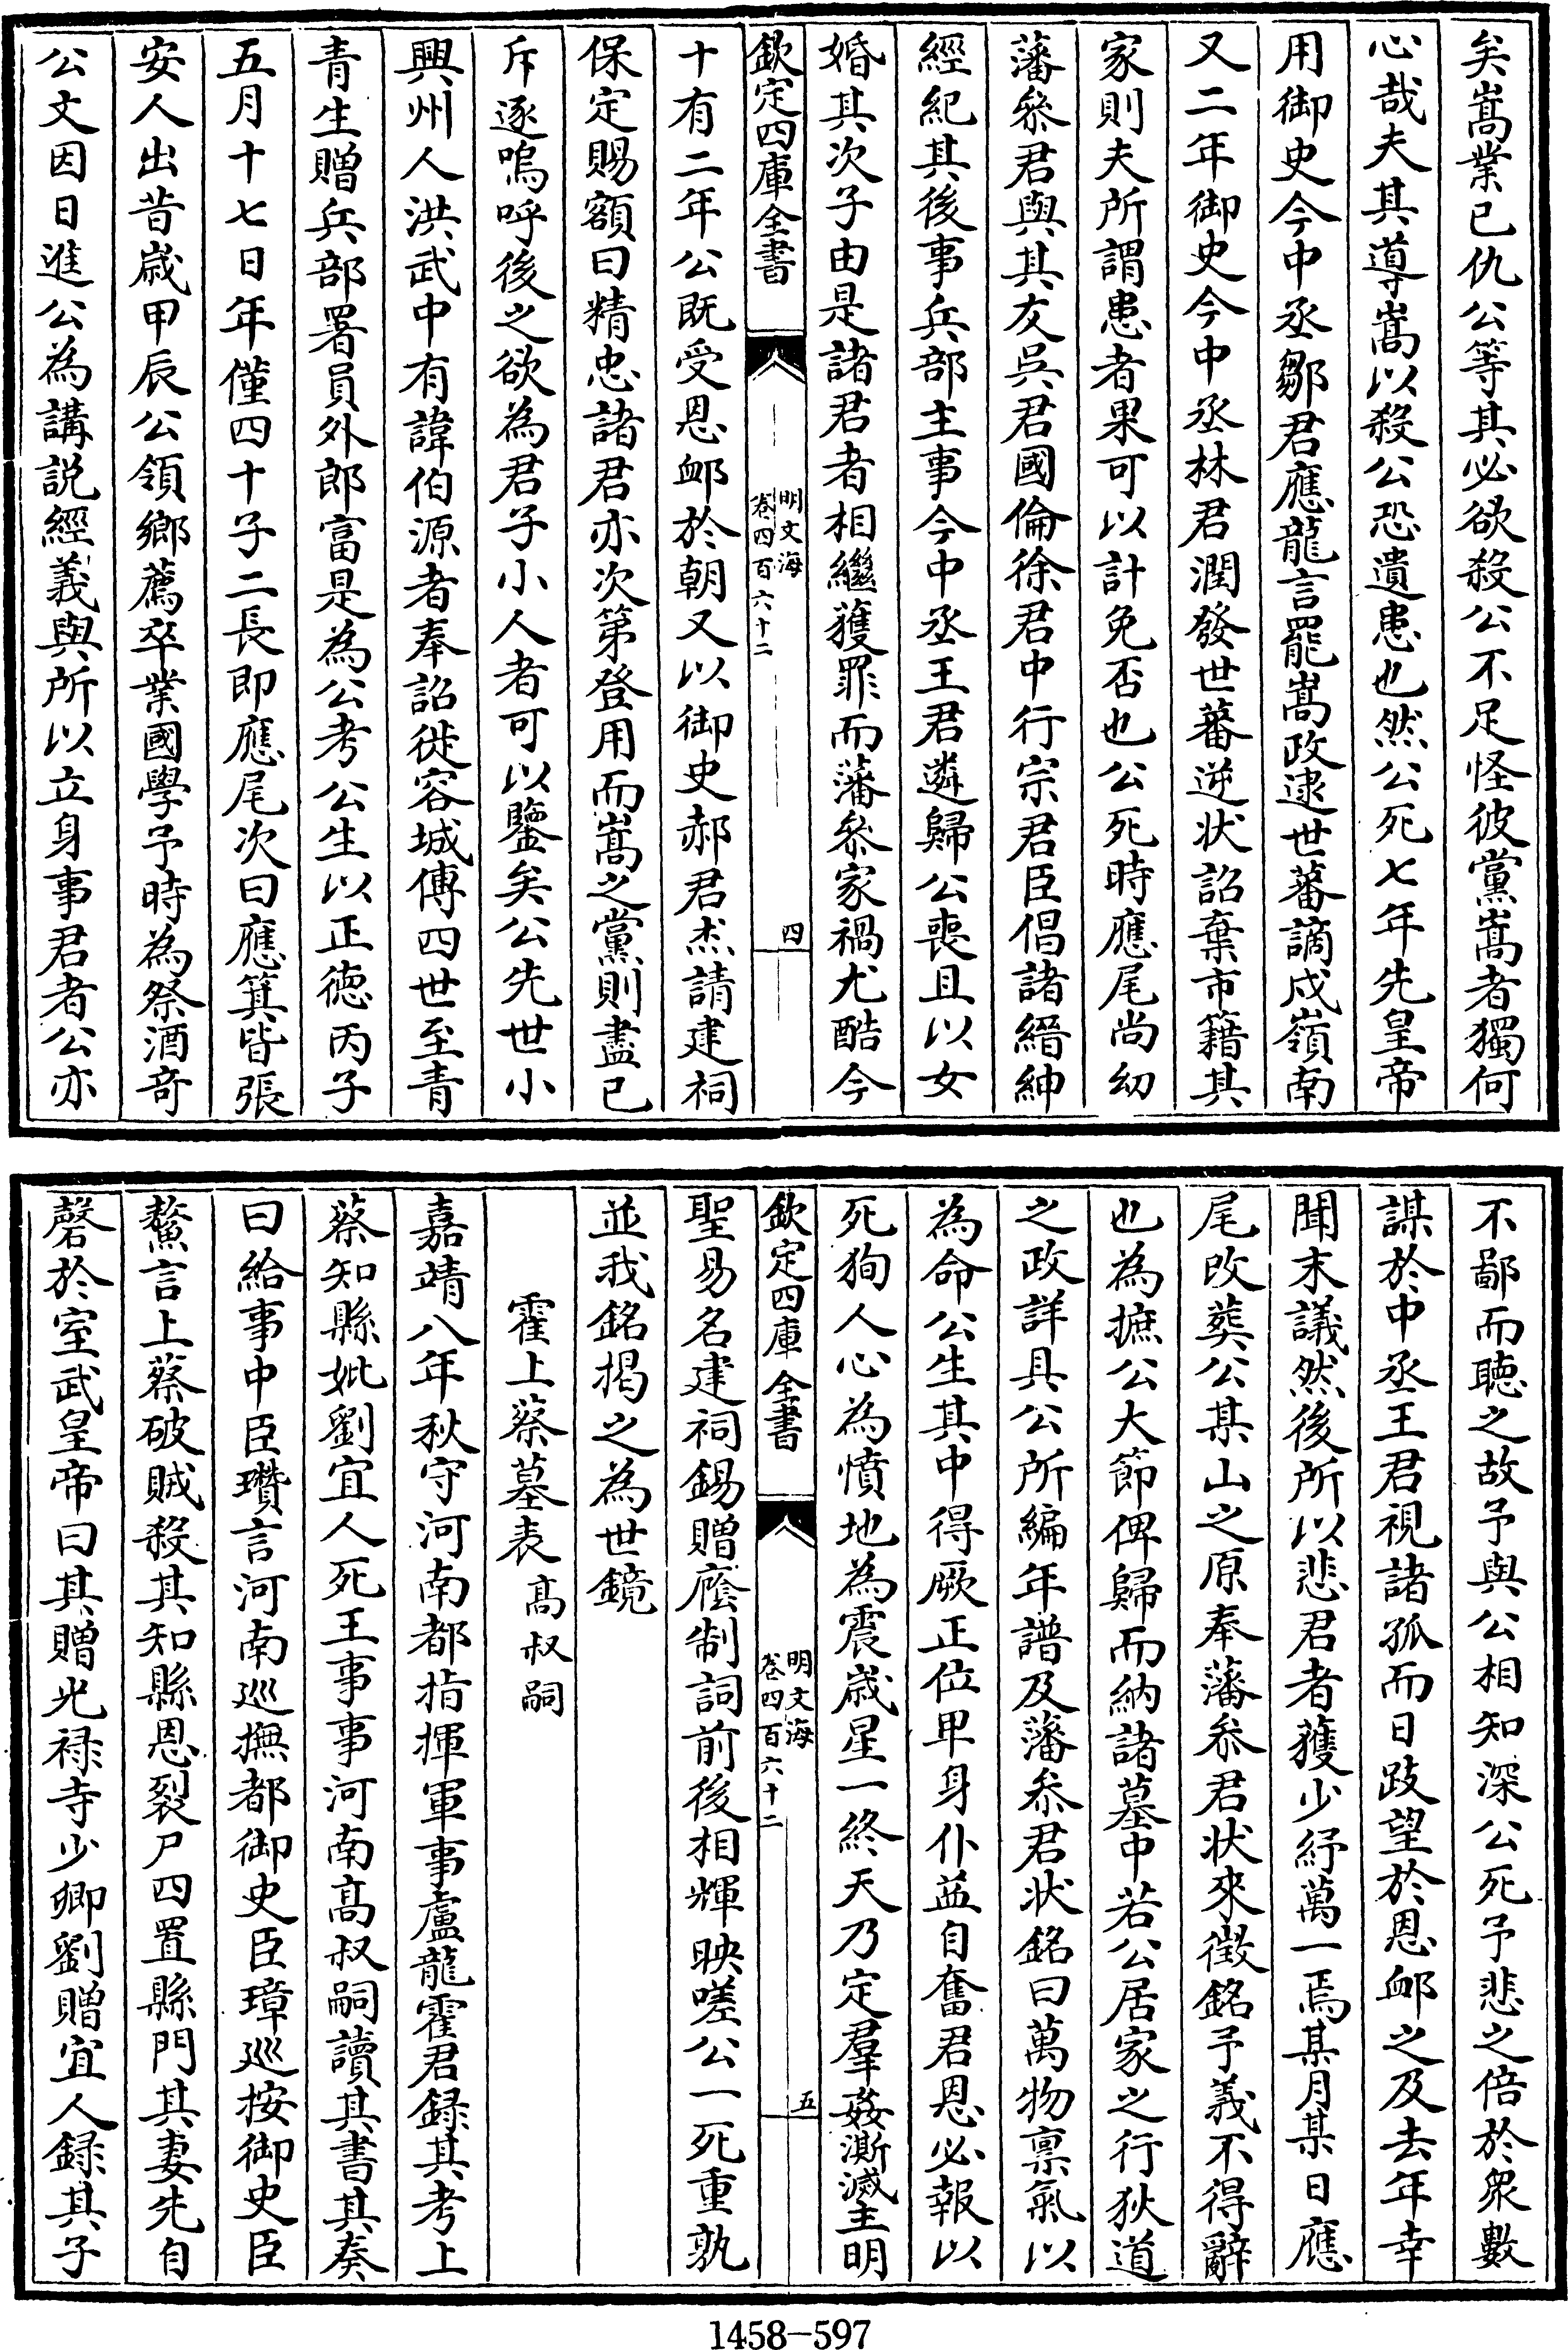 矣嵩業已仇公等其必欲殺公不足怪彼黨嵩者獨何
心哉夫其導嵩以殺公恐遺患也然公死七年先皇帝
用御史今中丞鄒君應龍言罷嵩政逮世蕃謫戍嶺南
又二年御史今中丞林君潤發世蕃逆狀詔棄市籍其
家則夫所謂患者果可以計免否也公死時應尾尚幼
藩叅君與其友吳君國倫徐君中行宗君臣倡諸縉紳
經紀其後事兵部主事今中丞王君遴歸公喪且以女
婚其次子由是諸君者相繼獲罪而藩叅家禍尤酷今
欽定四庫全書
明文海
卷四百六十二
四
十有二年公既受恩卹於朝又以御史郝君杰請建祠
保定賜額曰精忠諸君亦次第登用而嵩之黨則盡已
斥逐嗚呼後之欲為君子小人者可以鑒矣公先世小
興州人洪武中有諱伯源者奉詔徙容城傳四世至青
青生贈兵部署員外郎富是為公考公生以正徳丙子
五月十七日年僅四十子二長即應尾次曰應箕皆張
安人出昔嵗甲辰公領鄉薦卒業國學予時為祭酒竒
公文因日進公為講説經義與所以立身事君者公亦
不鄙而聴之故予與公相知深公死予悲之倍於衆數
謀於中丞王君視諸孤而日跂望於恩卹之及去年幸
聞末議然後所以悲君者獲少紓萬一焉某月某日應
尾改葬公某山之原奉藩叅君狀來徴銘予義不得辭
也為摭公大節俾歸而納諸墓中若公居家之行狄道
之政詳具公所編年譜及藩叅君狀銘曰萬物禀氣以
為命公生其中得厥正位卑身仆益自奮君恩必報以
死狥人心為憤地為震嵗星一終天乃定羣姦澌滅主明
欽定四庫全書
明文海
卷四百六十二
五
聖易名建祠錫贈廕制詞前後相輝映嗟公一死重孰
並我銘揭之為世鏡
霍上蔡墓表 髙叔嗣
嘉靖八年秋守河南都指揮軍事盧龍霍君録其考上
蔡知縣妣劉宜人死王事事河南髙叔嗣讀其書其奏
曰給事中臣瓚言河南巡撫都御史臣璋巡按御史臣
鰲言上蔡破賊殺其知縣恩裂尸四置縣門其妻先自
磬於室武皇帝曰其贈光禄寺少卿劉贈宜人録其子
1458-597